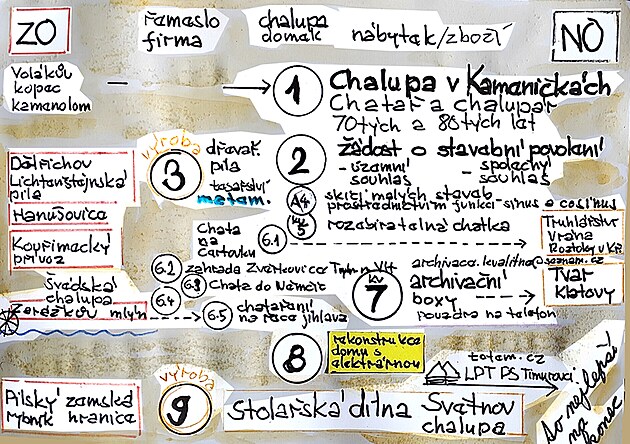 ZO
řemeslo
firma
chalupa
domek
nábytek/zboží
NO
Volákův
kopec
kamenolom
1
Chalupa v Kameničkách
Chatař a chalupář
70tých a 80tých let
výroba
3
dřevař.
pila
tesařství
metam.
2
žádost o stavební povolení
- územní
souhlas
- společný
souhlas
Dětřichov
Lichtenštejnská
pila
Hanušovice
Kouřimecký
přívoz
A4
skici malých staveb
prostřednictvím funkcí-sinus a cosinus
kv
5
rozebíratelná chatka
Chata
na
Čertovku
6.1
Truhlářství
Vrána
Roztoky u Kř.
archivace.kvalitne@seznam.cz
6.2
zahrada Zvěrkovice Týn n Vlt
6.3
Chata do Německ
Švédská
chalupa
6.4
Žerdákův mlýn
6.5
chataření
na řece Jihlava
kv
7
archivační
boxy
pouzdra na telefon
Tvar
Klatovy
8
rekonstrukce
domu s
elektrárnou
totem.cz
LPT PS Timurovci
Pilský zámská
rybník hranice
výroba
9
Stolařská dílna Světnov
chalupa
to nejlepší
na
konec